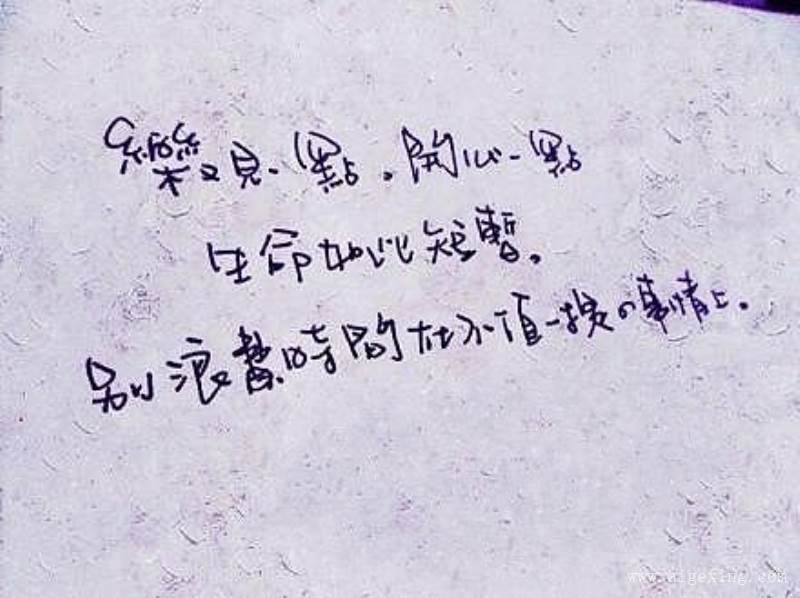 樂觀一點。開心一點
生命如此短暫。
別浪費時間在不值一提の事情上。